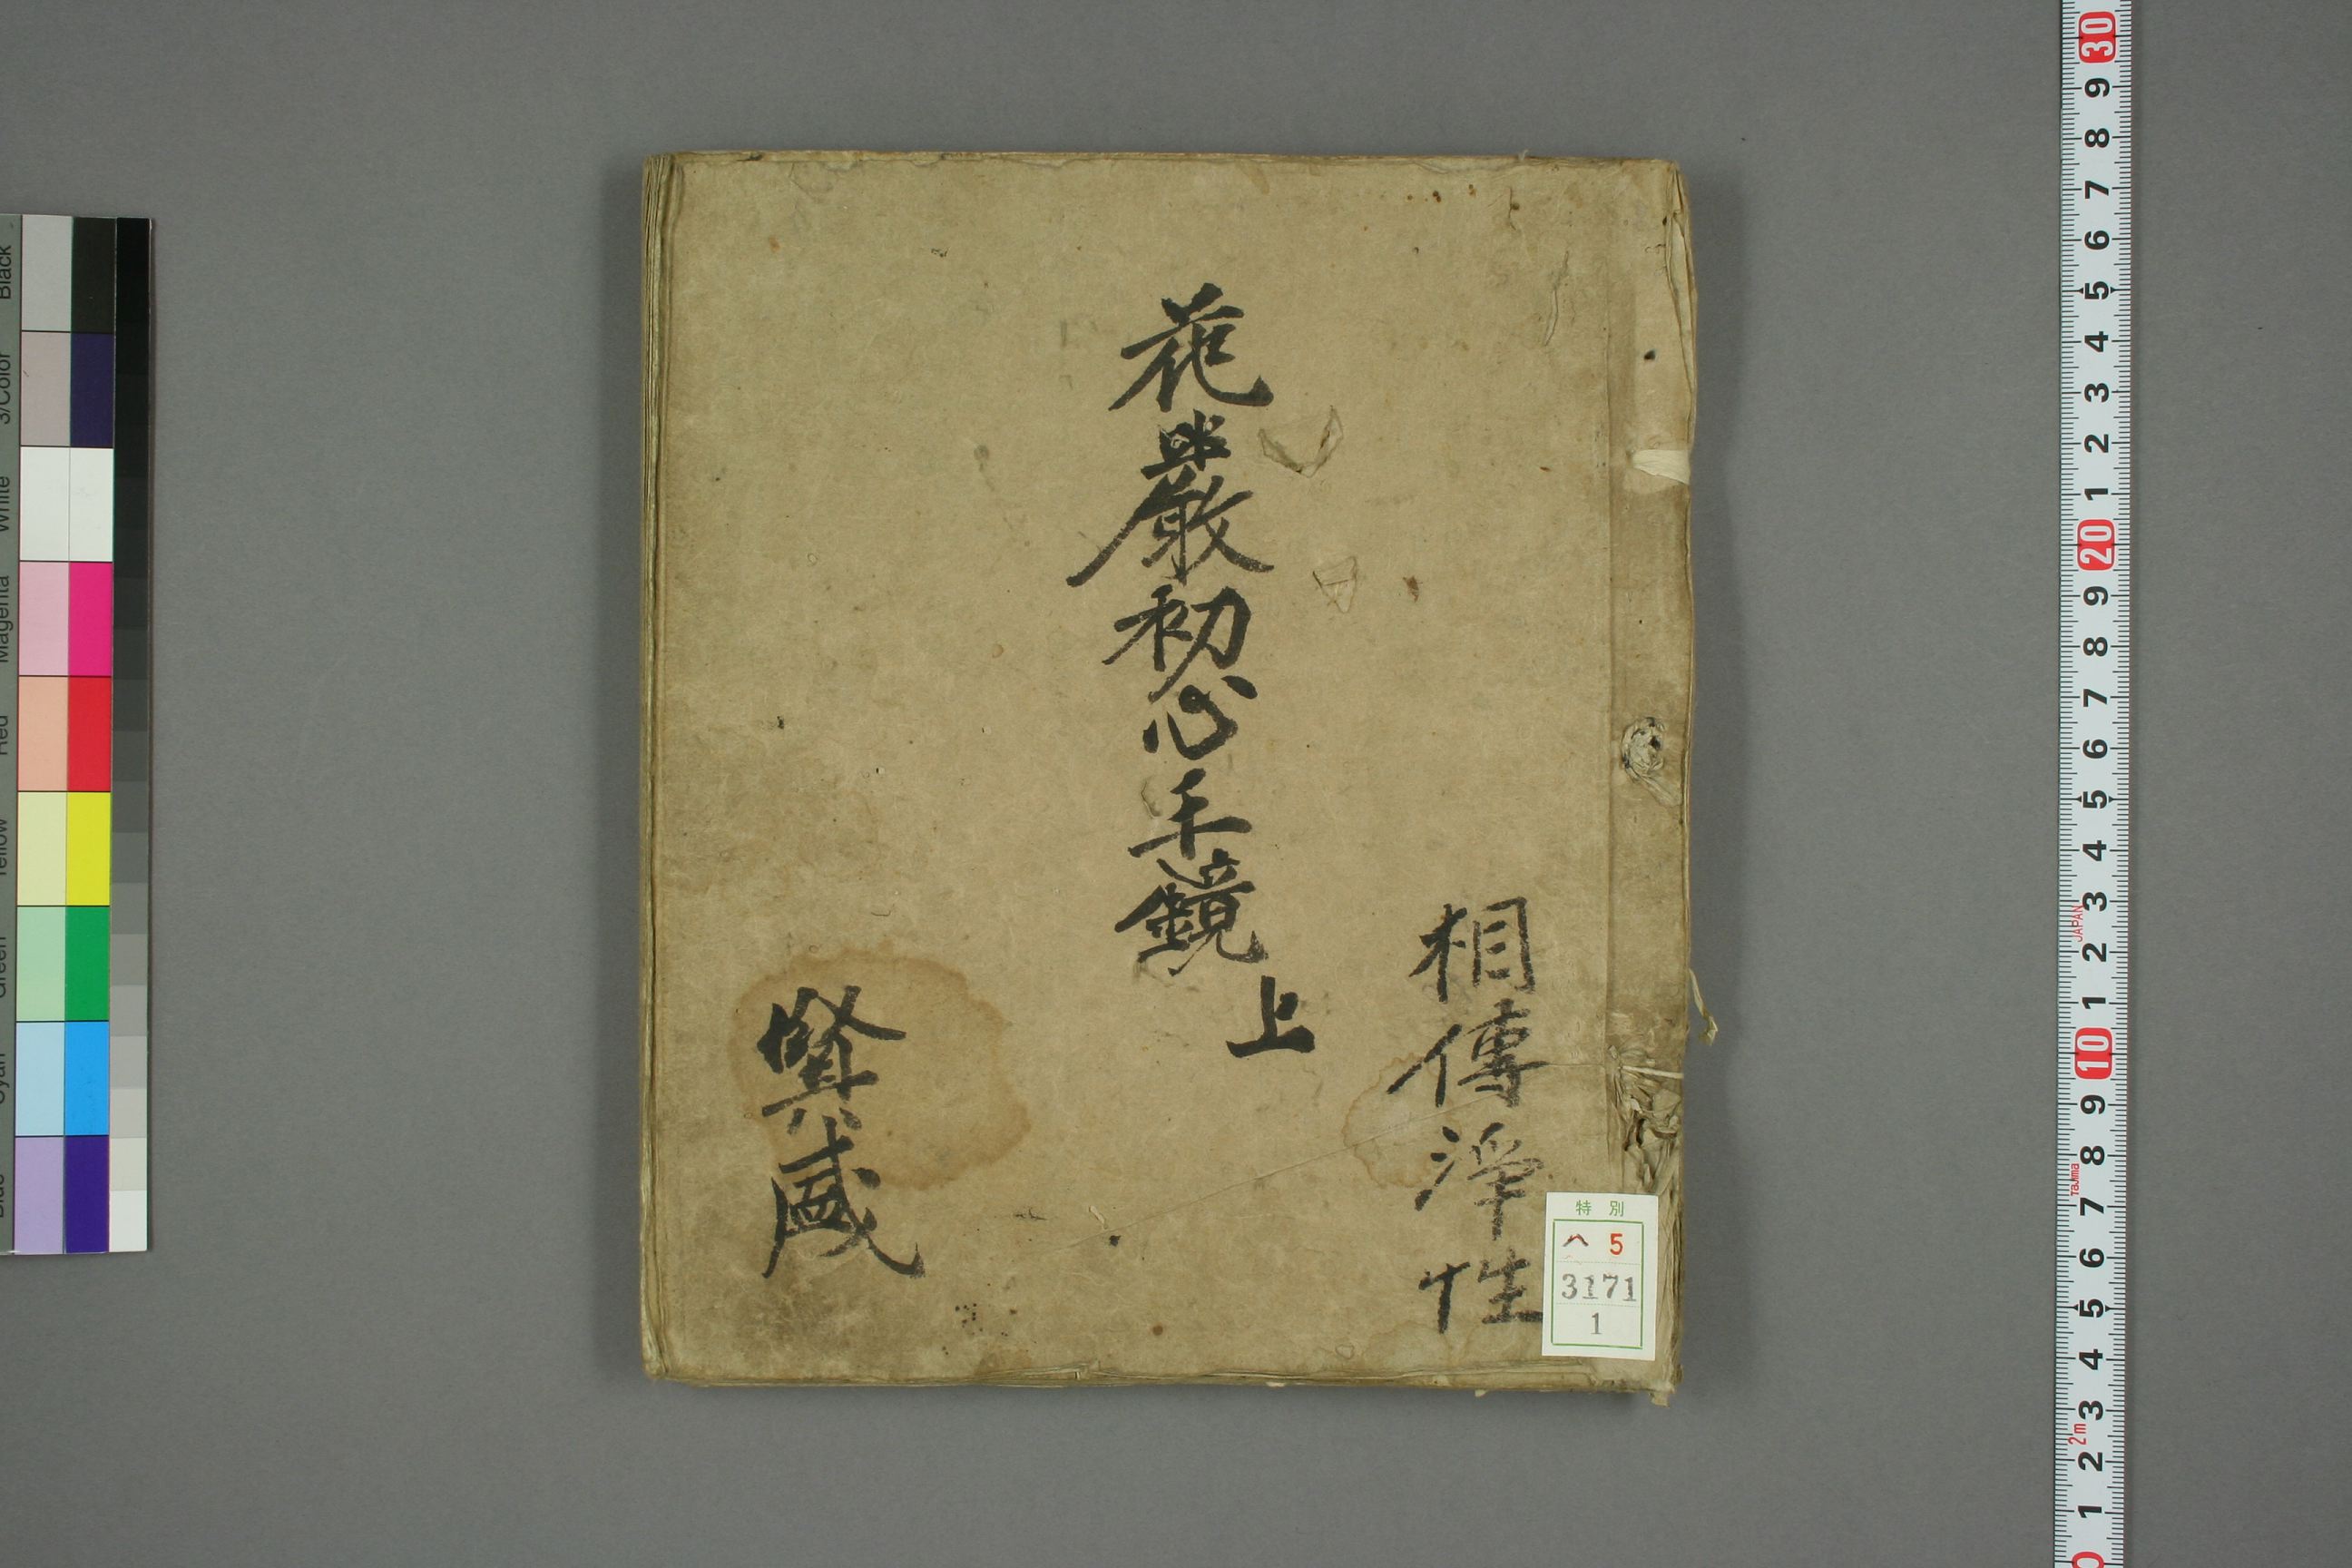 相傳淨性
花嚴初心手鏡
上
賢盛
特別
ヘ 5
3171
1
Black
3/Color
White
Magenta
Red
Yellow
Green
Cyan
Blue
30
9
8
7
6
5
4
3
2
1
20
9
8
7
6
5
4
3
JAPAN
2
1
10
9
8
Tajima
7
6
5
4
3
2m
2
1
0